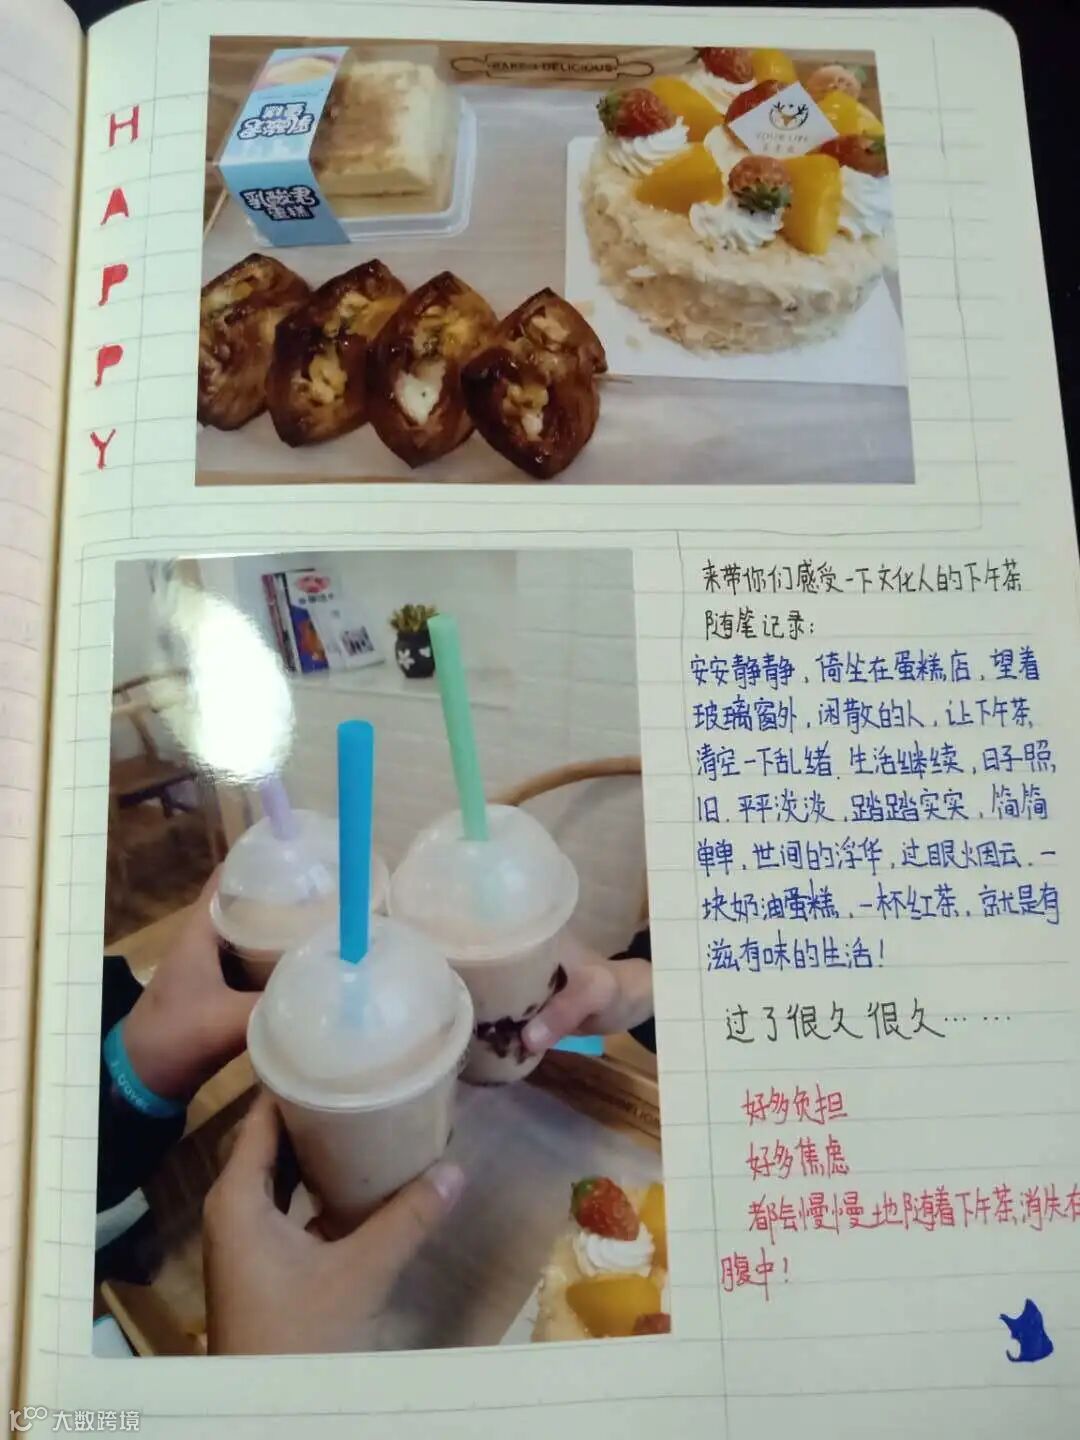 HAPPY
BAKED DELICIOUS
乳酸君
蛋糕
YOUR LIFE
来带你们感受一下文化人的下午茶
随笔记录:
安安静静,倚坐在蛋糕店,望着
玻璃窗外,闲散的人,让下午茶
清空一下乱绪.生活继续,日子照
旧.平平淡淡,踏踏实实,简简
单单,世间的浮华,过眼烟云.一
块奶油蛋糕,一杯红茶,就是有
滋有味的生活!
过了很久很久……
好多负担
好多焦虑
都会慢慢地随着下午茶消失在
腹中!
大数跨境